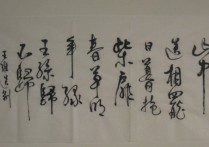 山中
送相罷
日暮掩
柴扉
春草明
年綠
王孫歸
不歸